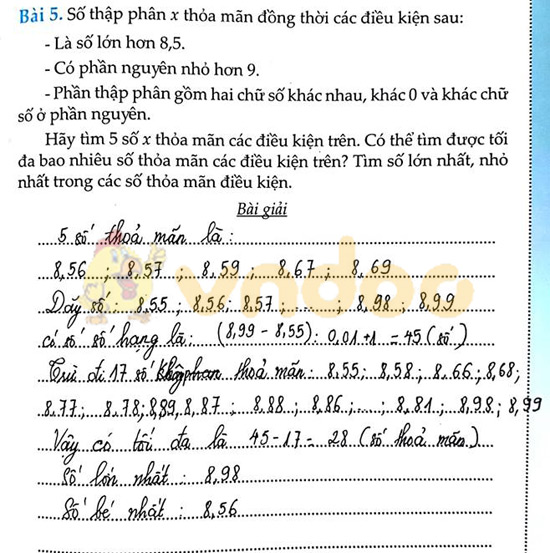 Bài 5. Số thập phân x thỏa mãn đồng thời các điều kiện sau:
- Là số lớn hơn 8,5.
- Có phần nguyên nhỏ hơn 9.
- Phần thập phân gồm hai chữ số khác nhau, khác 0 và khác chữ
số ở phần nguyên.
Hãy tìm 5 số x thỏa mãn các điều kiện trên. Có thể tìm được tối
đa bao nhiêu số thỏa mãn các điều kiện trên? Tìm số lớn nhất, nhỏ
nhất trong các số thỏa mãn điều kiện.
Bài giải
5 số thoả mãn là:
8,56 ; 8,57 ; 8,59 ; 8,67 ; 8,69
vndoc
Dãy số: 8,55 ; 8,56; 8,57; ......; 8,98 ; 8,99
có số số hạng là: (8,99 - 8,55): 0,01 +1 = 45 (số)
Trừ đi 17 số thoả mãn: 8,55; 8,58; 8,66; 8,68;
8,77; 8,78; 8,89, 8,87; 8,88; 8,86; ...; 8,81; 8,98; 8,99
Vậy có tối đa là 45-17= 28 (số thoả mãn)
Số lớn nhất: 8,98
Số bé nhất: 8,56